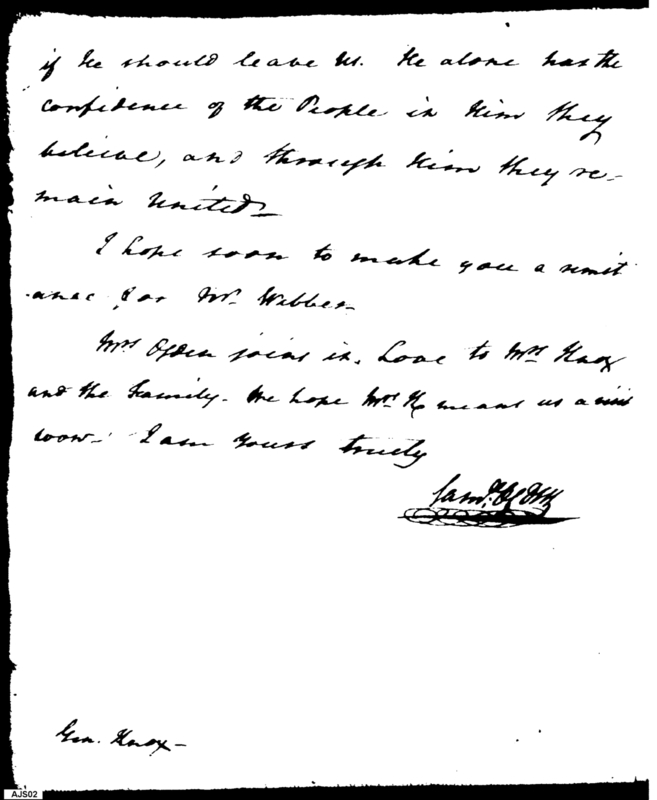 if He should leave us. He alone has the
confidence of the People in Him they
believe, and through Him they re-
main United—
I hope soon to make you a remit
ance for Mr. Webber—
Mrs Ogden joins in Love to Mrs Knox
and the Family. We hope Mrs K means us a visit
soon— I am Yours truely
Saml. Ogden
Gen. Knox—
AJS02